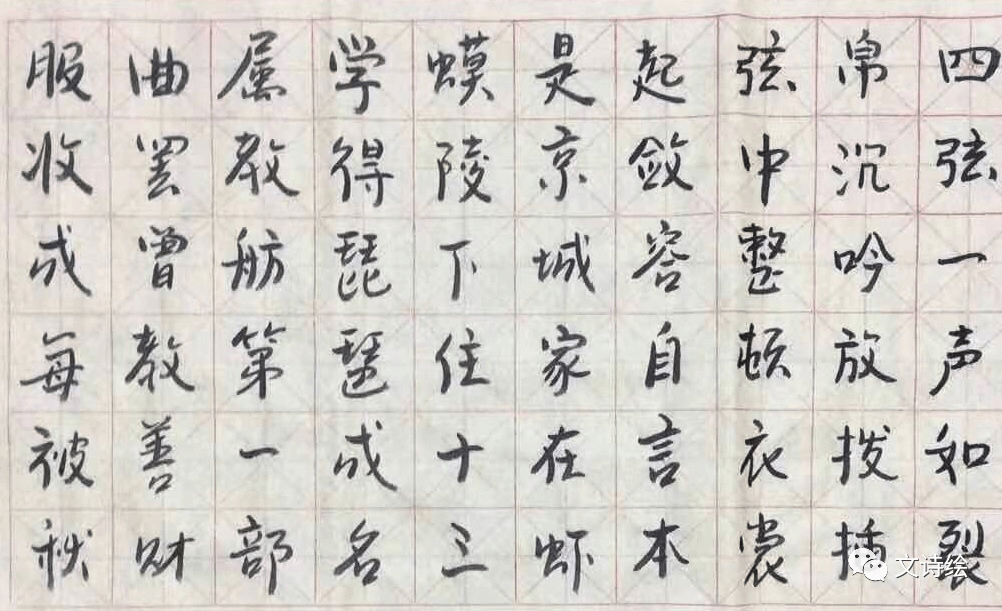 四弦一声如裂
帛沉吟放拨插
弦中整顿衣裳
起敛容自言本
是京城家在虾
蟆陵下住十三
学得琵琶成名
属教舫第一部
曲罢曾教善财
服妆成每被秋
文诗绘